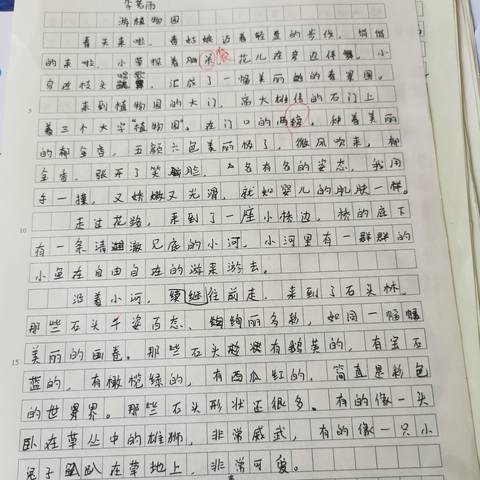 李艺雨
游植物园
春天来啦，春姑娘迈着轻盈的步伐，悄悄
的来啦。小草探着脑袋花儿在旁边伴舞，小
鸟在枝头唱歌，汇成了一幅美丽的春景图。
来到植物园的大门，高大雄伟的石门上
着三个大字"植物园"。在门口的两旁，种着美丽
的郁金香，五颜六色美丽极了，微风吹来，郁
金香，张开了笑脸，各有各的姿态，我用
手一摸，又娇嫩又光滑，就如婴儿的肌肤一样。
走过花路，来到了一座小桥边，桥的底下
有一条清澈见底的小河，小河里有一群群的
小鱼在自由自在的游来游去。
沿着小河，继续往前走，来到了石头林，
那些石头千姿百态、绚丽多彩，如同一幅幅
美丽的画卷。那些石头有鹅黄的，有宝石
蓝的，有橄榄绿的，有西瓜红的，简直是彩色
的世界。那些石头形状还很多、有的像一头
卧在草丛中的雄狮，非常威武，有的像一只小
兔子趴在草地上，非常可爱。
5
10
15